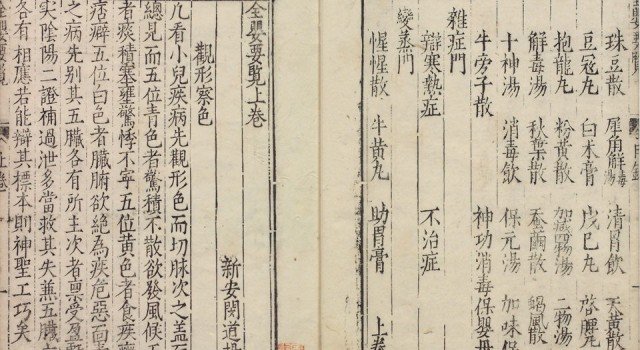 珠豆散 犀角解毒湯 清胃散 天黃散
豆寇丸 白朮膏 戊己丸 啓脾丸
抱龍丸 粉黃散 湯 二物湯
解毒湯 秋葉散 蚕繭散 蝎風散
十神湯 消毒飲 保元湯 加味保
牛旁子散 神功消毒保嬰丹
雜症門
辯寒熱症 不治症
變蒸門
惺惺散 牛黃丸 助胃膏 上卷
全嬰要覽上卷
新安閔道揚
觀形察色
凡看小兒疾病先觀形色而切脉次之蓋
總見而五位青色者驚積不散欲發風候
者痰積塞壅驚悸不寧五位黃色者食疾
痞癖五位白色者臟腑欲絕為疾危惡而
之病先别其五臟各有所主次者禀受盈
實陰陽二證補過泄多當救其失兼五臟
各有相應若能辯其標本則神聖工巧矣